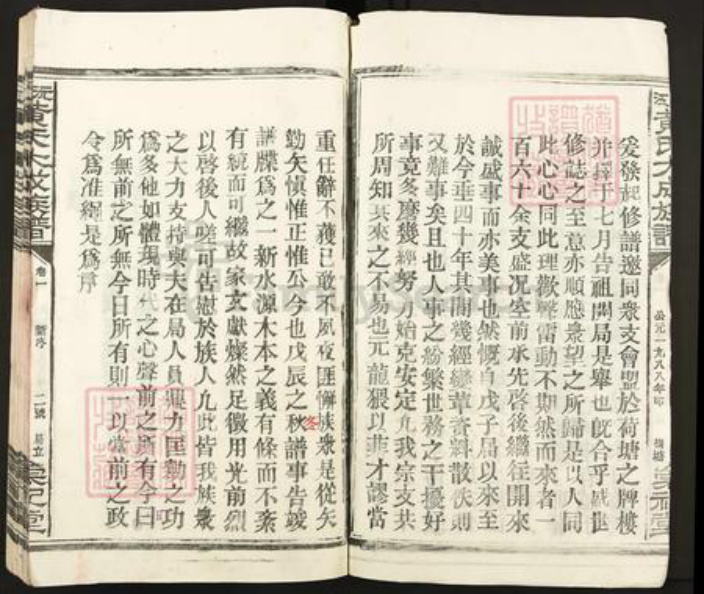 爰發起修譜邀同衆支會盟於荷塘之牌樓
并擇于七月告祖開局是舉也旣合乎盛世
修誌之至意亦順應衆望之所歸是以人同
此心心同此理歡聲雷動不期然而來者一
百六十余支盛况空前承先啓後繼往開來
誠盛事而亦美事也然慨自戊子屆以來至
於今垂四十年其間幾經變革資料散佚則
又難事矣且也人事之紛繁世務之干擾好
事竟多磨幾經努力始克安定凢我宗支共
所周知其來之不易也元龍猥以菲才謬當
重任辭不獲已敢不夙夜匪懈族衆是從矢
勤矢慎惟正惟公今也戊辰之秋譜事告竣
冬
譜牒爲之一新水源木本之義有條而不紊
有統而可繼故家文獻燦然足徵用光前烈
以啓後人嗟可告慰於族人凢此皆我族衆
之大力支持與夫在局人員鼎力匡勷之功
爲多他如體現時代之心聲前之所有今曰
所無前之所無今日所有則一以當前之政
令爲准繩是爲序
黃氏大成族譜
公元一九八八年印
卷一
新序
二號
易立